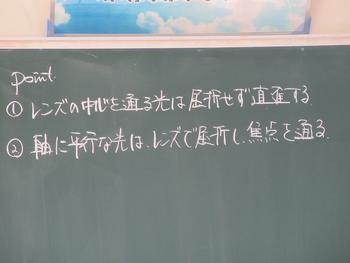 point.
① レンズの中心を通る光は屈折せず直進する.
② 軸に平行な光は、レンズで屈折し、焦点を通る.